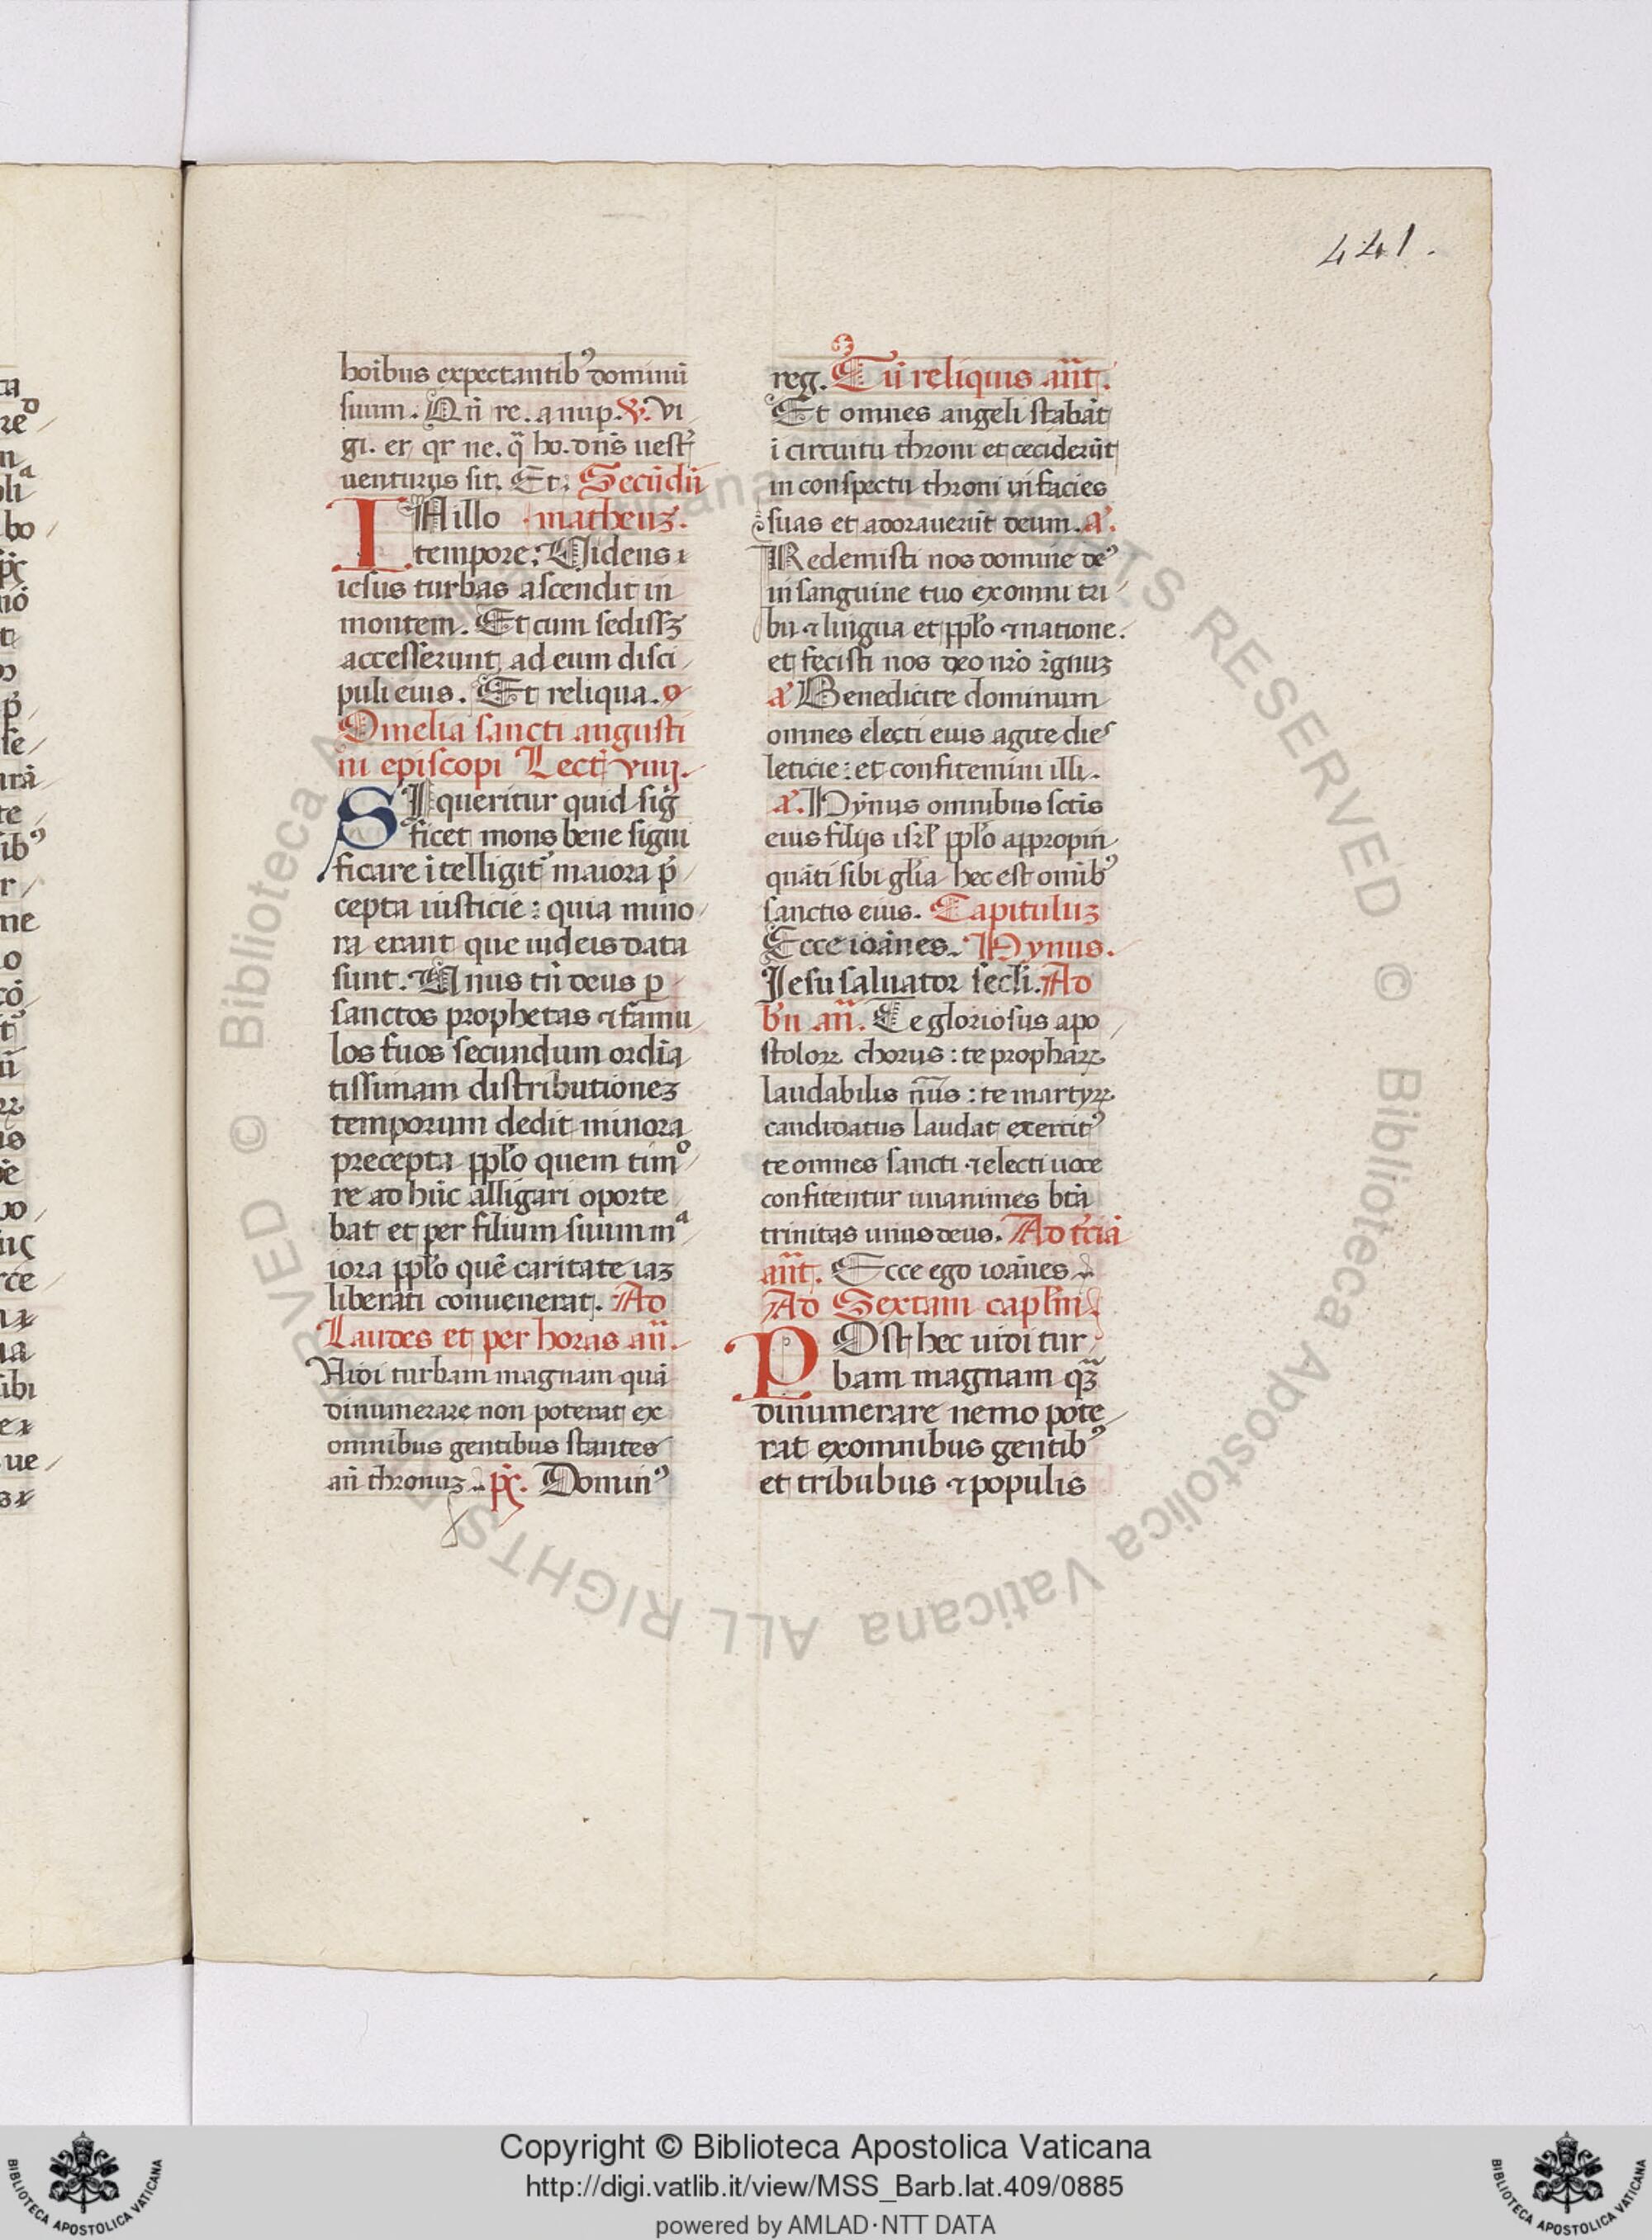 441.
hoībus expectantibꝰ dominū
suum. Qn̄ re. a nup. ℣. Vi
gi. er qr ne. q̄ ho. dn̄s uestr̄
uenturus sit. Et. Secūdū
IN illo matheuꝫ.
tempore: Uidens
iesus turbas ascendit in
montem. Et cum sedissꝫ
accesserunt ad eum disci
puli eius. Et reliqua.
Omelia sancti augusti
ni episcopi Lect̄ viiij.
SI queritur quid siḡ
ficet mons bene signi
ficare ītelligit᷑ maiora p̄
cepta iusticie: quia mino
ra erant que iudeis data
sunt. Unus tn̄ deus ꝑ
sanctos prophetas ⁊ famu
los suos secundum ordīa
tissimam distributioneꝫ
temporum dedit minora
precepta pplo quem timo
re ad hūc alligari oporte
bat et per filium suum ma
iora pplo quē caritate iaꝫ
liberari conuenerat. Ad
Laudes et per horas an̄.
Vidi turbam magnam quā
dinumerare non poterat ex
omnibus gentibus stantes
an̄ thronuꝫ. p̄s. Dominꝰ
reg. Cū reliquis an̄t.
Et omnes angeli stabāt
ī circuitu throni et ceciderūt
in conspectu throni in facies
suas et adorauerūt deum. a᷑.
Redemisti nos domine deꝰ
in sanguine tuo ex omni tri
bu ⁊ lingua et pplo ⁊ natione.
et fecisti nos deo nr̄o r̄gnuꝫ
a᷑ Benedicite dominum
omnes electi eius agite dies
leticie: et confitemini illi.
a᷑. Hÿnus omnibus sctīs
eius filijs isrl pplo appropin
quāti sibi gl̄ia hec est omībꝰ
sanctis eius. Capituluꝫ
Ecce ioānes. Hynus.
Iesu saluator secl̄i. Ad
bn̄ an̄. Te gloriosus apo
stoloꝝ chorus: te prophaꝝ
laudabilis nūs: te martyꝝ
candidatus laudat exercitꝰ
te omnes sancti ⁊ electi uoce
confitentur unanimes btā
trinitas unus deus. Ad tr̄ciā
an̄t. Ecce ego ioānes
Ad Sextam capl̄m.
POst hec uidi tur
bam magnam qꝫ̄
dinumerare nemo pote
rat ex omnibus gentibꝰ
et tribubus ⁊ populis
© Biblioteca Apostolica Vaticana ALL RIGHTS RESERVED © Biblioteca Apostolica Vaticana ALL RIGHTS RESERVED
BIBLIOTECA APOSTOLICA VATICANA
Copyright © Biblioteca Apostolica Vaticana
http://digi.vatlib.it/view/MSS_Barb.lat.409/0885
powered by AMLAD·NTT DATA
BIBLIOTECA APOSTOLICA VATICANA